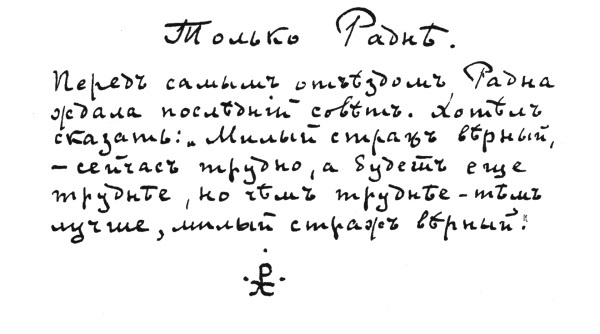 Только Раднѣ.
Передъ самымъ отъѣздомъ Радна
ждала послѣдній совѣтъ. Хотѣлъ
сказать: „Милый стражъ вѣрный,
– сейчасъ трудно, а будетъ еще
труднѣе, но чѣмъ труднѣе – тѣмъ
лучше, милый стражъ вѣрный."